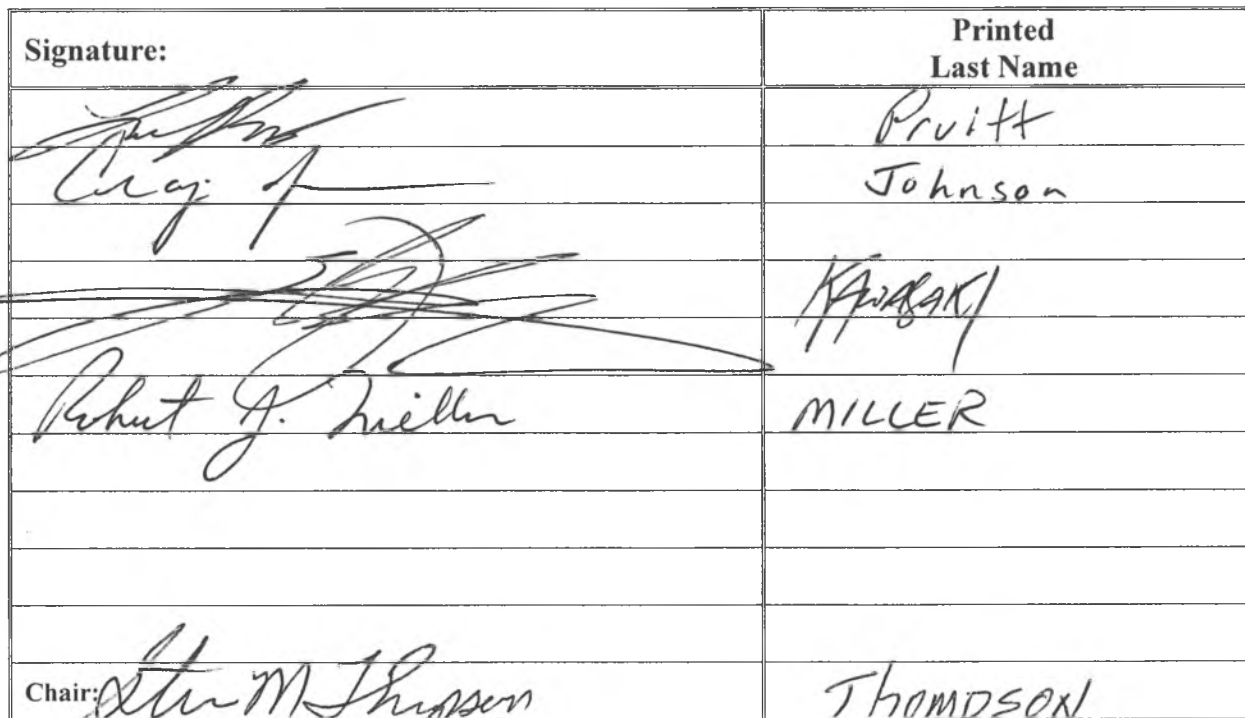 Signature:
Printed
Last Name
Pruitt
Craig
Johnson
KAWASAKI
Robert J. Miller
MILLER
Chair: Steve M Thompson
THOMPSON